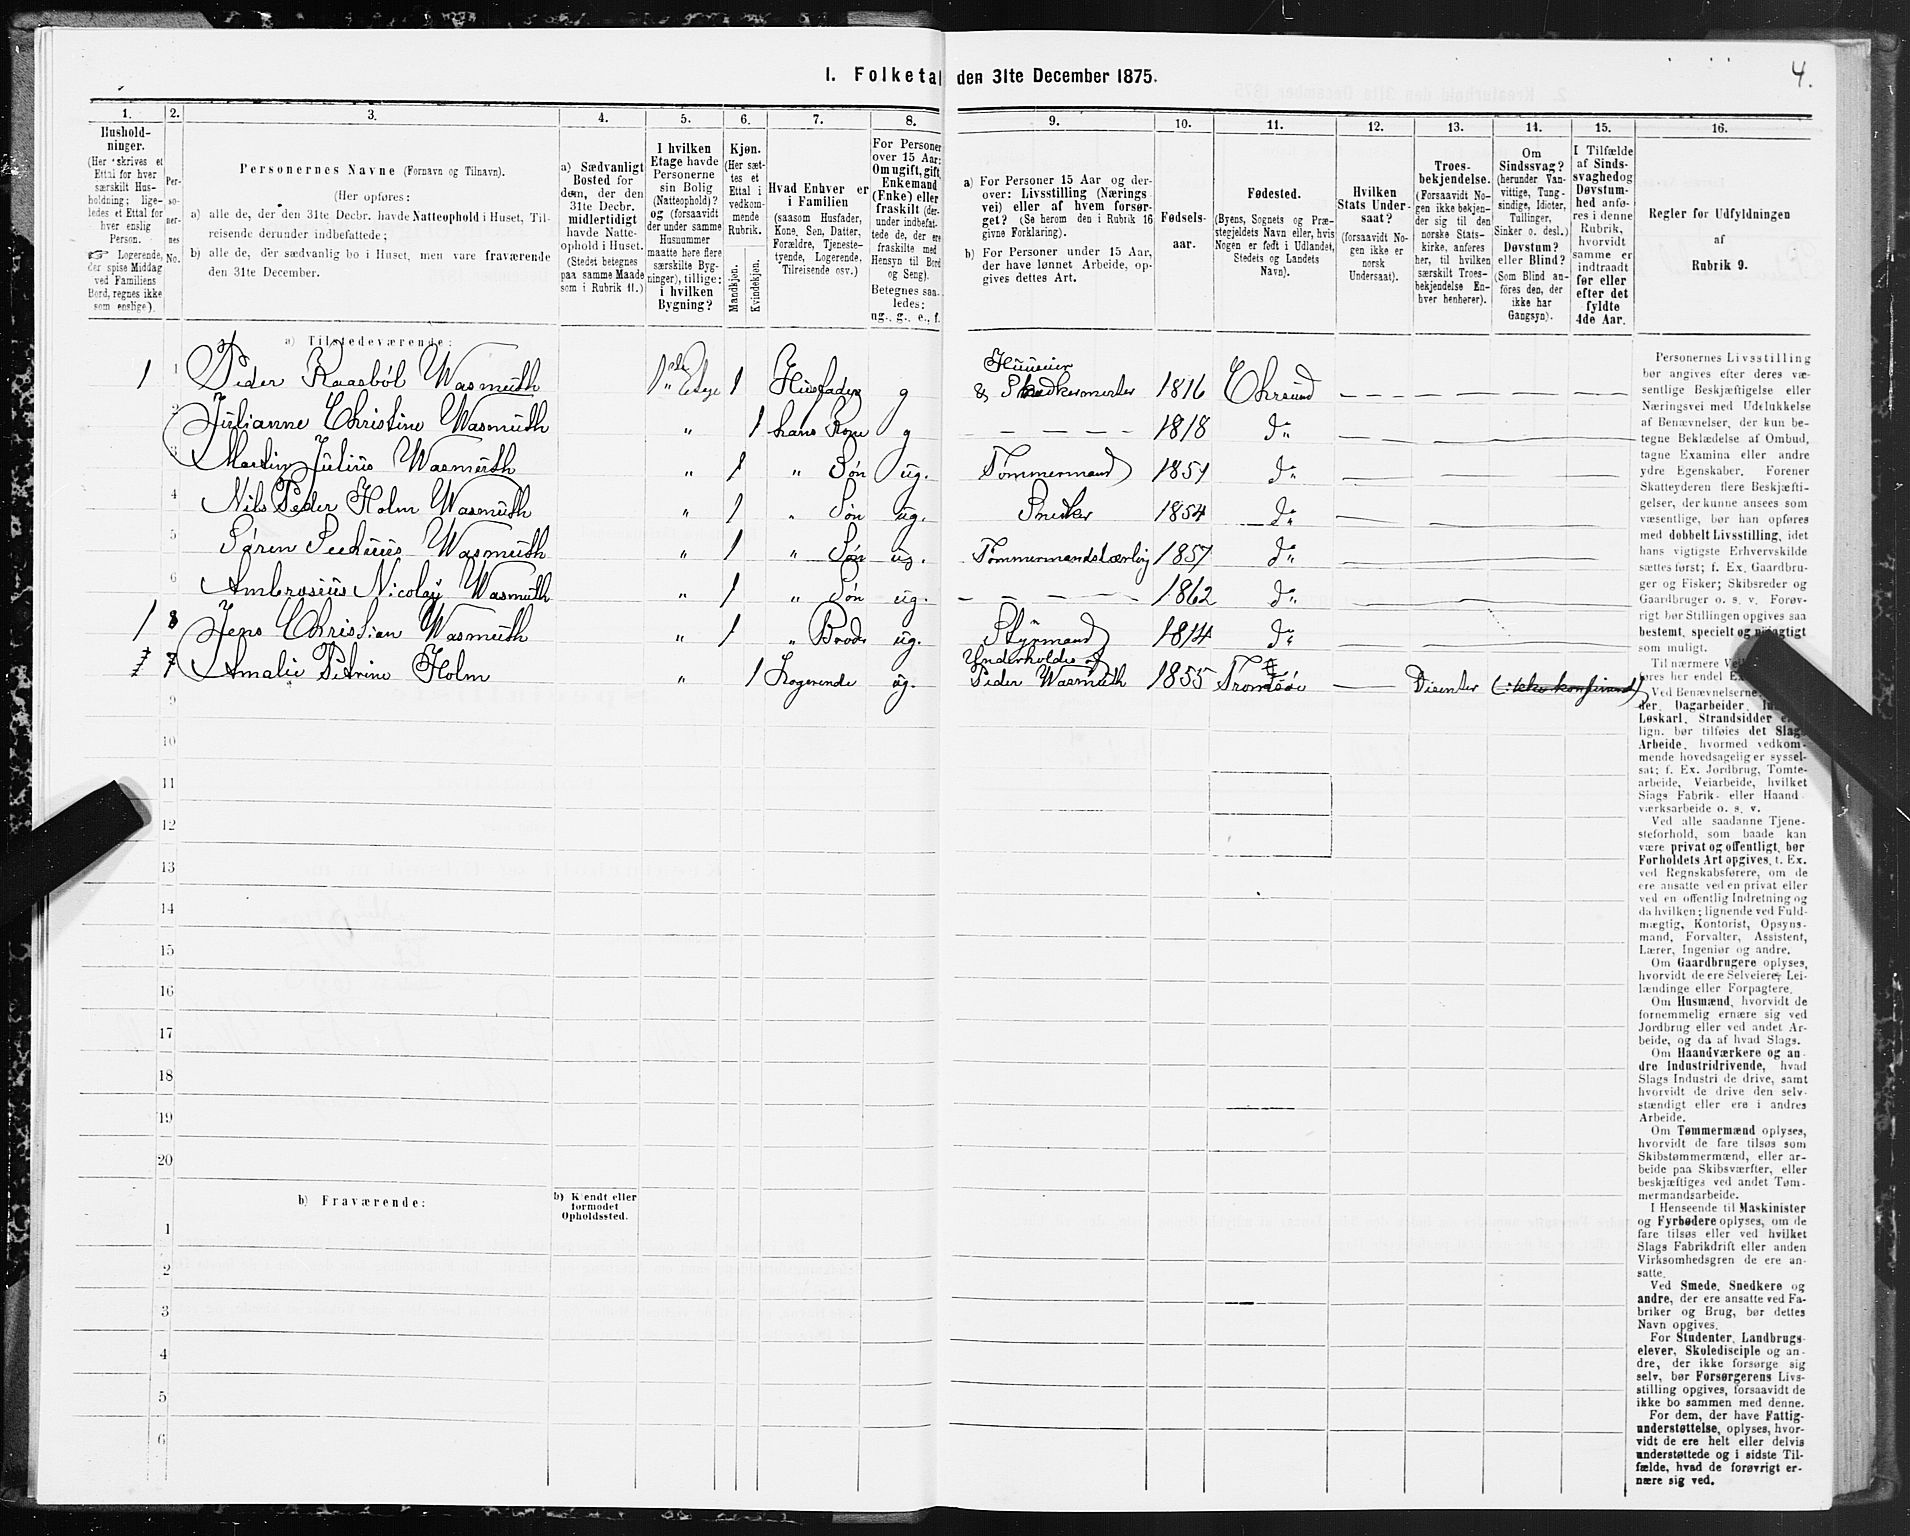 4.
I. Folketal den 31te December 1875.
1. 2. 3. 4. 5. 6. 7. 8. 9. 10. 11. 12. 13. 14. 15. 16.
Hushold-
ninger.
(Her skrives et
Ettal for hver
særskilt Hus-
holdning; lige-
ledes et Ettal for
hver enslig
Person.
☞ Logerende,
der spise Middag
ved Familiens
Bord, regnes ikke
som enslige).
Per-
so-
ner-
nes
No.
Personernes Navne (Fornavn og Tilnavn).
(Her opføres:
a) alle de, der den 31te Decbr. havde Natteophold i Huset, Til-
reisende derunder indbefattede;
b) alle de, der sædvanlig bo i Huset, men vare fraværende
den 31te December.
a) Sædvanligt
Bosted for
dem, der den
31te Decbr.
midlertidigt
havde Natte-
ophold i Huset.
(Stedet betegnes
paa samme Maade
som i Rubrik 11.)
I hvilken
Etage havde
Personerne
sin Bolig
(Natteophold)?
og (forsaavidt
der under samme
Husnummer
maatte høre flere
særskilte Byg-
ninger), tillige:
i hvilken
Bygning?
Kjøn.
(Her sæt-
tes et
Ettal i
vedkom-
mende
Rubrik.
Mandkjøn.
Kvindekjøn.
Hvad Enhver er
i Familien
(saasom Husfader,
Kone, Søn, Datter,
Forældre, Tjeneste-
tyende, Logerende,
Tilreisende osv.)
For Personer
over 15 Aar:
Om ugift, gift,
Enkemand
(Enke) eller
fraskilt (der-
under indbefat-
tede de, der ere
fraskilte med
Hensyn til Bord
og Seng).
Betegnes saa-
ledes:
ug., g., e., f.
a) For Personer 15 Aar og der-
over: Livsstilling (Nærings-
vei) eller af hvem forsør-
get? (Se herom den i Rubrik 16
givne Forklaring).
b) For Personer under 15 Aar,
der have lønnet Arbeide, op-
gives dettes Art.
Fødsels-
aar.
Fødested.
(Byens, Sognets og Præ-
stegjeldets Navn eller, hvis
Nogen er født i Udlandet,
Stedets og Landets
Navn).
Hvilken
Stats Under-
saat?
(forsaavidt No-
gen ikke er
norsk
Undersaat).
Troes-
bekjendelse.
(Forsaavidt No-
gen ikke bekjen-
der sig til den
norske Stats-
kirke, anføres
her, til hvilken
særskilt Troes-
bekjendelse En-
hver henhører).
Om
Sindssvag?
(herunder Van-
vittige, Tung-
sindige, Idioter,
Tullinger,
Sinker o. desl.)
Døvstum?
eller Blind?
(Som Blind an-
føres den, der
ikke har
Gangsyn).
I Tilfælde
af Sinds-
svaghed og
Døvstum-
hed anfø-
res i denne
Rubrik,
hvorvidt
samme er
indtraadt
før eller
efter det
fyldte
4de Aar.
Regler for Udfyldningen
af
Rubrik 9.
a) Tilstedeværende:
1 1 Peder Kaasbøl Wasmuth 1ste Etage 1 Husfader g Huuseier & Snedkermester 1816 Ekersund
2 Julianne Christine Wasmuth " 1 hans Kone g 1818 do
3 Martin Julius Wasmuth " 1 " Søn ug. Tømmermand 1851 do
4 Nils Peder Holm Wasmuth " 1 " Søn ug. Snedker 1854 do
5 Søren Seehuus Wasmuth " 1 " Søn ug. Tømmermandslærling 1857 do
6 Ambrosius Nicolay Wasmuth " 1 " Søn ug. 1862 do
1 8 Jens Christian Wasmuth " 1 " Broder ug. Styrmand 1814 do
7 Amalie Petrine Holm " 1 Logerende ug. Underholdes af Peder Wasmuth 1855 Tromsøe Disenter (ikke konfirmeret)
9
10
11
12
13
14
15
16
17
18
19
20
b) Fraværende:
b) Kjendt eller
formodet
Opholdssted.
1
2
3
4
5
6
Personernes Livsstilling
bør angives efter deres væ-
sentlige Beskjæftigelse eller
Næringsvei med Udelukkelse
af Benævnelser, der kun be-
tegne Beklædelse af Ombud,
tagne Examina eller andre
ydre Egenskaber. Forener
Skatteyderen flere Beskjæfti-
gelser, der kunne ansees som
væsentlige, bør han opføres
med dobbelt Livsstilling, idet
hans vigtigste Erhvervskilde
sættes først; f. Ex. Gaardbru-
ger og Fisker; Skibsreder og
Gaardbruger o. s. v. Forøv-
rigt bør Stillingen opgives saa
bestemt, specielt og nøiagtigt
som muligt.
Til nærmere
føres her endel
Ved Benævnelserne,
der, Dagarbeider,
Løskarl, Strandsidder
lign. bør tilføies det Slags
Arbeide, hvormed vedkom-
mende hovedsagelig er syssel-
sat; f. Ex. Jordbrug, Tomte-
arbeide, Veiarbeide, hvilket
Slags Fabrik- eller Haand-
værksarbeide o. s. v.
Ved alle saadanne Tjene-
steforhold, som baade kan
være privat og offentligt, bør
Forholdets Art opgives, t. Ex.
ved Regnskabsførere, om de
ere ansatte ved en privat eller
ved en offentlig Indretning og
da hvilken; lignende ved Fuld-
mægtig, Kontorist, Opsyns-
mand, Forvalter, Assistent,
Lærer, Ingeniør og andre.
Om Gaardbrugere oplyses,
hvorvidt de ere Selveiere, Lei-
lændinge eller Forpagtere.
Om Husmænd, hvorvidt de
fornemmelig ernære sig ved
Jordbrug eller ved andet Ar-
beide, og da af hvad Slags.
Om Haandværkere og an-
dre Industridrivende, hvad
Slags Industri de drive, samt
hvorvidt de drive den selv-
stændigt eller ere i andres
Arbeide.
Om Tømmermænd oplyses,
hvorvidt de fare tilsøs som
Skibstømmermænd, eller ar-
beide paa Skibsværfter, eller
beskjæftiges ved andet Tøm-
mermandsarbeide.
I Henseende til Maskinister
og Fyrbødere oplyses, om de
fare tilsøs eller ved hvilket
Slags Fabrikdrift eller anden
Virksomhedsgren de ere an-
satte.
Ved Smede, Snedkere og
andre, der ere ansatte ved Fa-
briker og Brug, bør dettes
Navn opgives.
For Studenter, Landbrugs-
elever, Skoledisciple og an-
dre, der ikke forsørge sig
selv, bør Forsørgerens Livs-
stilling opgives, forsaavidt de
ikke bo sammen med denne.
For dem, der have Fattig-
understøttelse, oplyses, hvor-
vidt de ere helt eller delvis
understøttede og i sidste Til-
fælde, hvad de forøvrigt er-
nære sig ved.